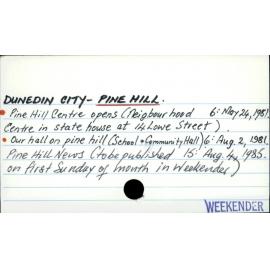 DUNEDIN CITY - PINE HILL.
• Pine Hill Centre opens (Neigbourhood 6: May 24, 1981.
Centre in state house at 14 Lowe Street).
• Our hall on pine hill (School + Community Hall) 6: Aug. 2, 1981.
Pine Hill News (to be published 15: Aug. 4, 1985.
on first Sunday of month in Weekender)
WEEKENDER